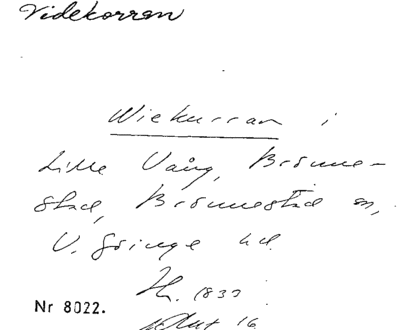 Videkorran
Wiekurran i
Lille Vång, Brönne-
stad, Brönnestad sn,
V. Göinge hd.
Nr 8022.